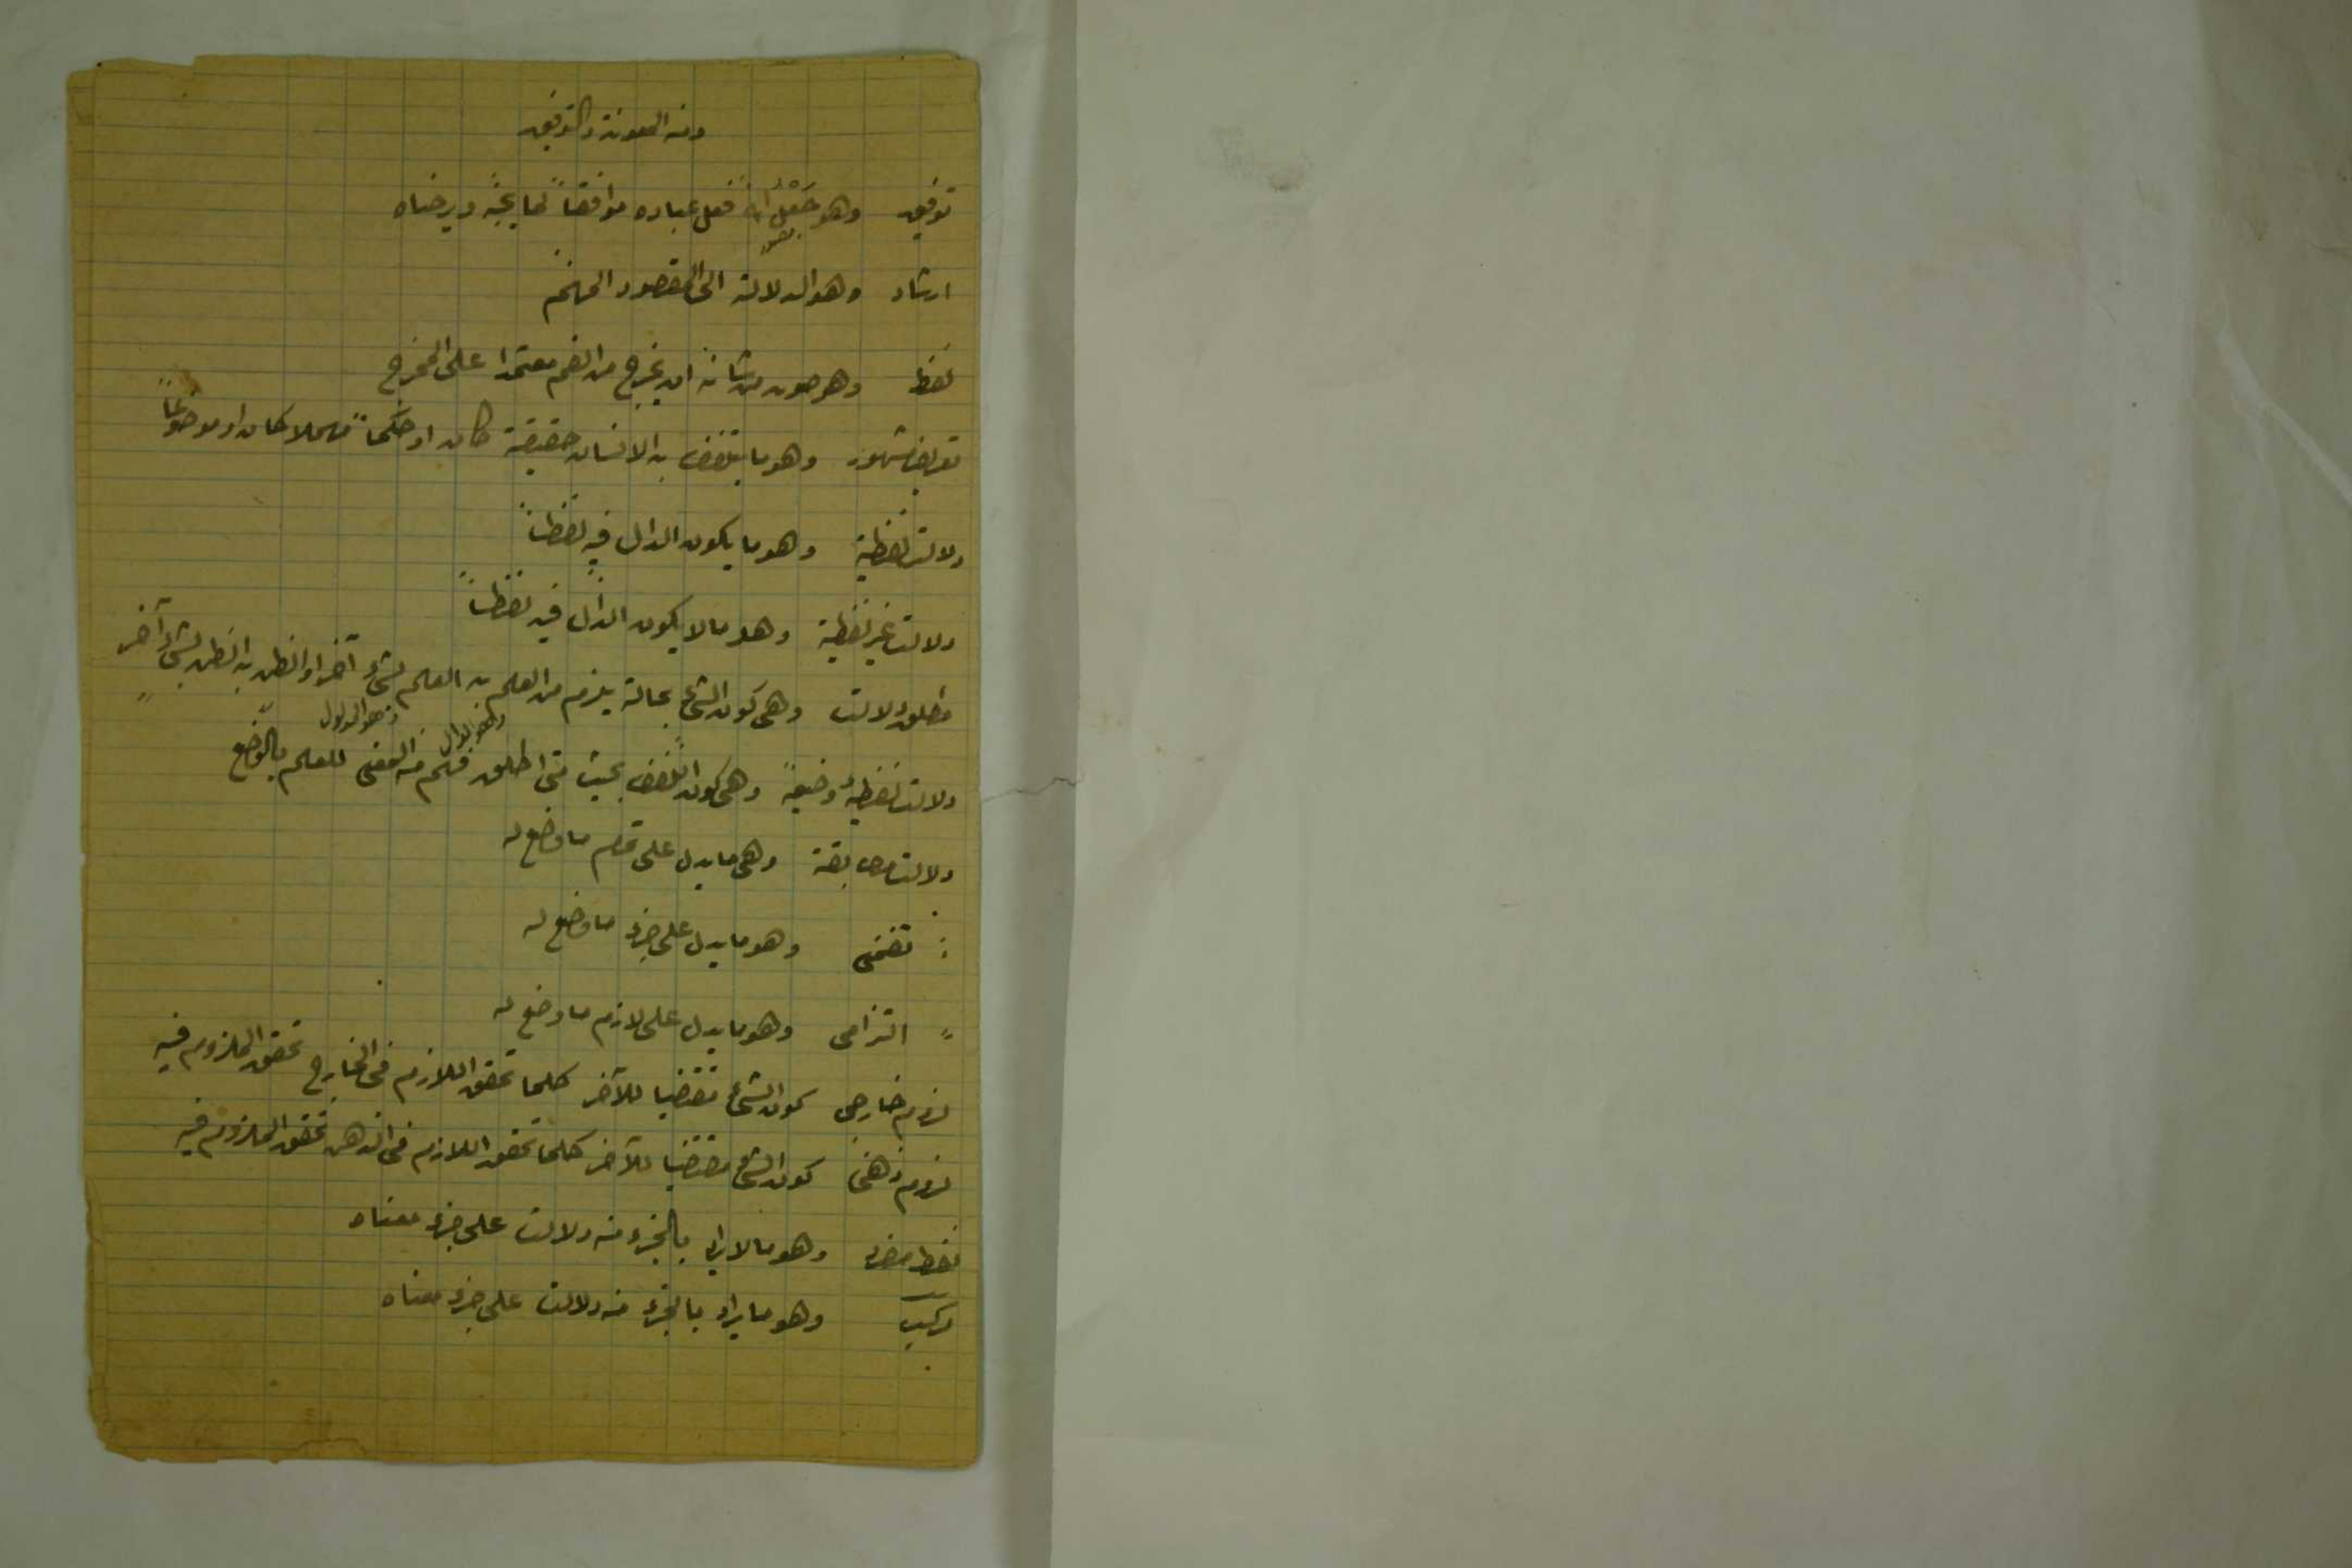 ومنه المعونة والتوفيق
توفيق وهو جَعْلُ الله فعل عباده موافقاً لما يحبّه ويرضاه
ارشاد وهو الدلالة الى المقصود المهم
لفظ وهو صوت من شأنه ان يخرج من الفم معتمدا على المخرج
تعريف مشهور وهو ما يتلفظ به الانسان حقيقة كان او حكماً مهملا كان او موضوعاً
دلالت لفظية وهو ما يكون الدال فيه لفظاً
دلالت غير لفظية وهو ما لا يكون الدال فيه لفظاً
مطلق دلالت وهى كون الشئ بحالة يلزم من العلم به العلم بشئ آخر او الظن به الظن بشئ آخر
وهو الدال وهو المدلول
دلالت لفظية وضعية وهى كون اللفظ بحيث متى اطلق فهم منه المعنى للعلم بالوضع
دلالت مطابقة وهى ما يدل على تمام ما وضع له
: تضمنى وهو ما يدل على جزء ما وضع له
" التزامى وهو ما يدل على لازم ما وضع له
لزوم خارجى كون الشئ مقتضيا للآخر كلما تحقق اللازم فى الخارج تحقق الملزوم فيه
لزوم ذهنى كون الشئ مقتضيا للآخر كلما تحقق اللازم فى الذهن تحقق الملزوم فيه
لفظ مفرد وهو ما لا يراد بالجزء منه دلالت على جزء معناه
مركب وهو ما يراد بالجزء منه دلالت على جزء معناه